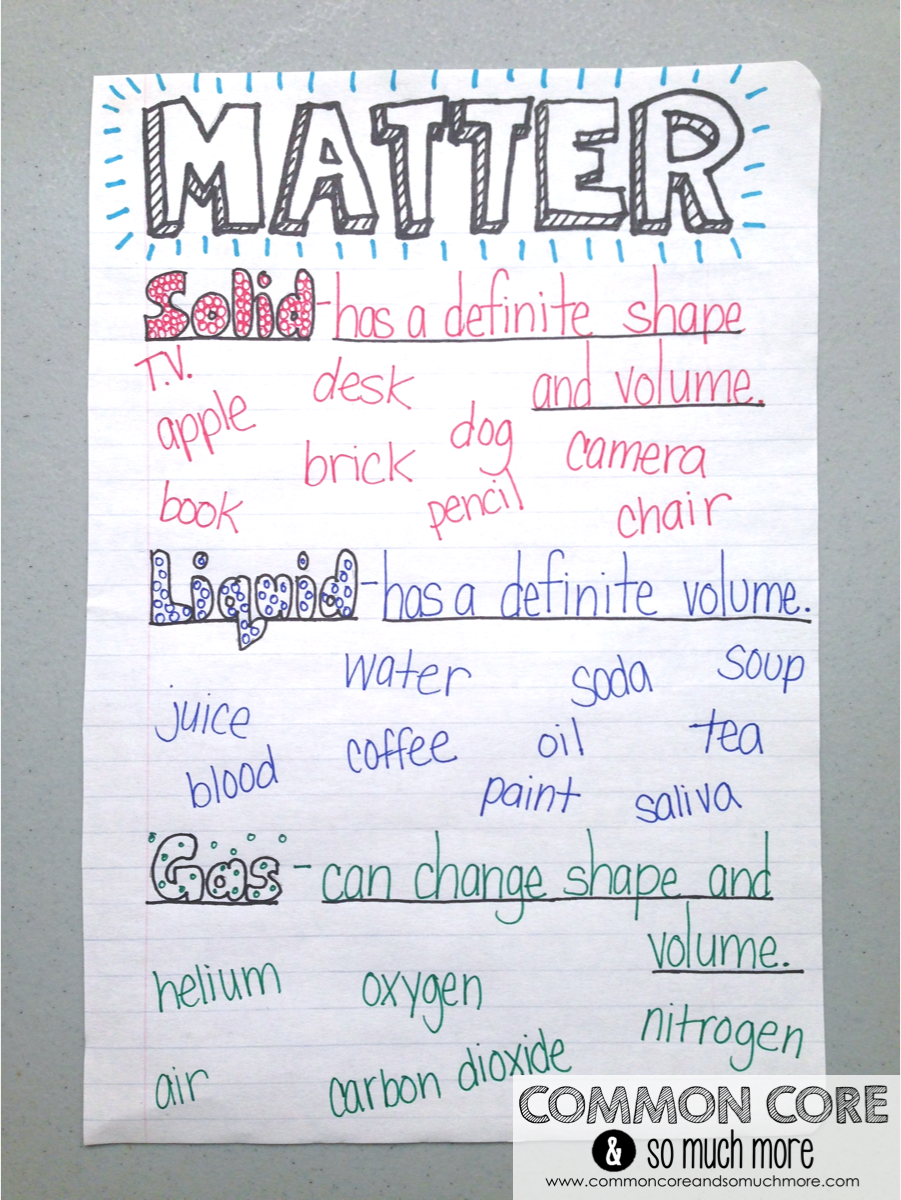 MATTER
Solid-has a definite shape
and volume.
T.V.
desk
apple
dog
brick
camera
book
pencil
chair
Liquid-has a definite volume.
water
soda
soup
juice
coffee
oil
tea
blood
paint
saliva
Gas-can change shape and
volume.
helium
oxygen
nitrogen
air
carbon dioxide
COMMON CORE
& so much more
www.commoncoreandsomuchmore.com